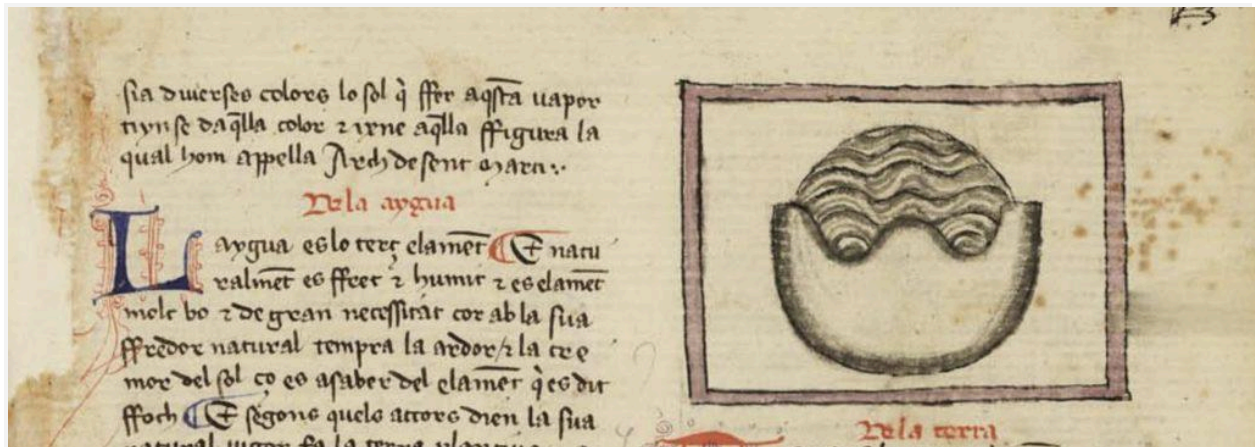 sia diuerses colors lo sol q̄ ffer aq̄sta uapor
tiynse daq̄lla color ⁊ ixne aq̄lla ffigura la
qual hom appella Arch de sent marti
De la aygua
L aygua es lo terç elamēt ¶ E natu
ralmēt es ffret ⁊ humit ⁊ es elamēt
molt bo ⁊ de gran necessitat cor ab la sua
ffredor natural tempra la ardor ⁊ la cre
mor del sol ço es asaber del elamēt q̄ es dit
ffoch ¶ E segons quels actors dien la sua
natural fa la terra
De la terra